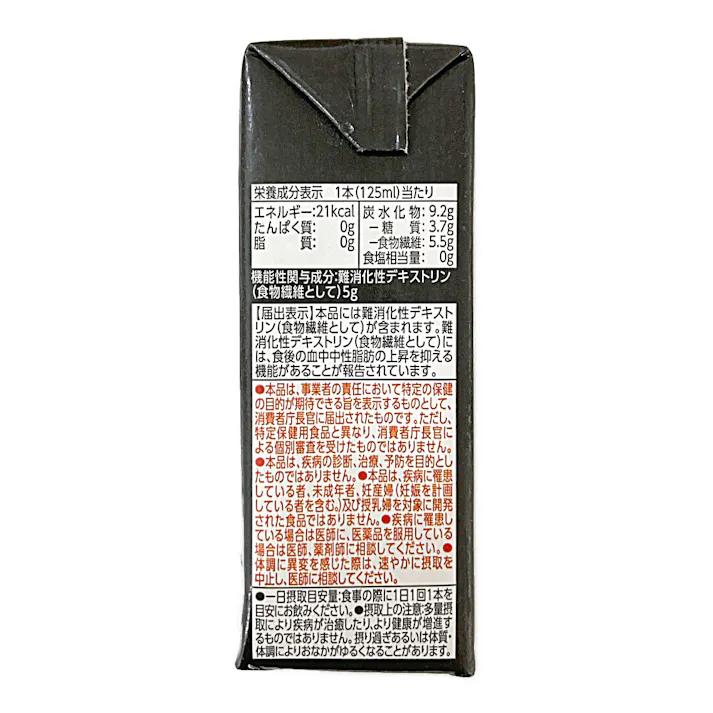 栄養成分表示 1本(125ml)当たり
エネルギー:21kcal
たんぱく質: 0g
脂質: 0g
炭水化物: 9.2g
-糖質: 3.7g
-食物繊維: 5.5g
食塩相当量: 0g
機能性関与成分:難消化性デキストリン
(食物繊維として)5g
【届出表示】本品には難消化性デキスト
リン(食物繊維として)が含まれます。難
消化性デキストリン(食物繊維として)に
は、食後の血中中性脂肪の上昇を抑える
機能があることが報告されています。
●本品は、事業者の責任において特定の保健
の目的が期待できる旨を表示するものとして、
消費者庁長官に届出されたものです。ただし、
特定保健用食品と異なり、消費者庁長官によ
る個別審査を受けたものではありません。
●本品は、疾病の診断、治療、予防を目的とし
たものではありません。●本品は、疾病に罹患
している者、未成年者、妊産婦(妊娠を計画
している者を含む。)及び授乳婦を対象に開発
された食品ではありません。●疾病に罹患し
ている場合は医師に、医薬品を服用している
場合は医師、薬剤師に相談してください。●
体調に異変を感じた際は、速やかに摂取を
中止し、医師に相談してください。
●一日摂取目安量:食事の際に1日1回1本を
目安にお飲みください。●摂取上の注意:多量摂
取により疾病が治癒したり、より健康が増進す
るものではありません。摂り過ぎあるいは体質・
体調によりおなかがゆるくなることがあります。